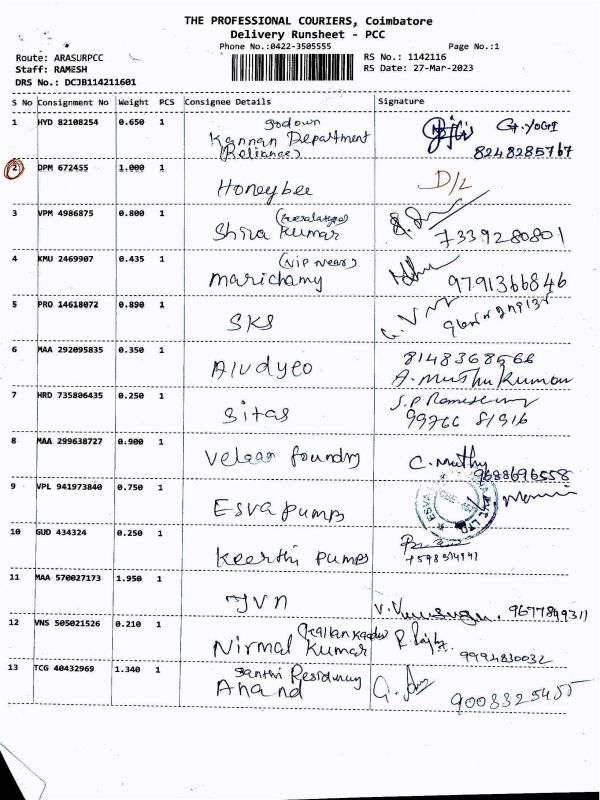 THE PROFESSIONAL COURIERS, Coimbatore
Delivery Runsheet - PCC
Phone No.:0422-3505555 Page No.:1
Route: ARASURPCC RS No.: 1142116
Staff: RAMESH RS Date: 27-Mar-2023
DRS No.: DCJB114211601
S No Consignment No Weight PCS Consignee Details Signature
1 HYD 82108254 0.650 1 godown
Kannan Department G.YOGI
(Reliance) 8248285767
2 DPM 672455 1.000 1 D/L
Honeybee
3 VPM 4986875 0.800 1
Shiva Kumar 7339280801
4 KMU 2469907 0.435 1 (NIP Near)
Marichamy 9791366846
5 PRO 14618072 0.890 1
SKS
6 MAA 292095835 0.350 1 8148368566
A. Muthu Kumar
7 HRD 735806435 0.250 1
Sitas 99766 81916
8 MAA 299638727 0.900 1
Velaar foundry C. Muthu
9688696558
9 VPL 941973840 0.750 1
ESVA Pumps ESVA
10 GUD 434324 0.250 1
Keerthi Pumps
11 MAA 570027173 1.950 1
JVN 9677849311
12 VNS 505021526 0.210 1
Nirmal Kumar 9994830032
13 TCG 40432969 1.340 1 Santhi Residency
Anand 9003325455